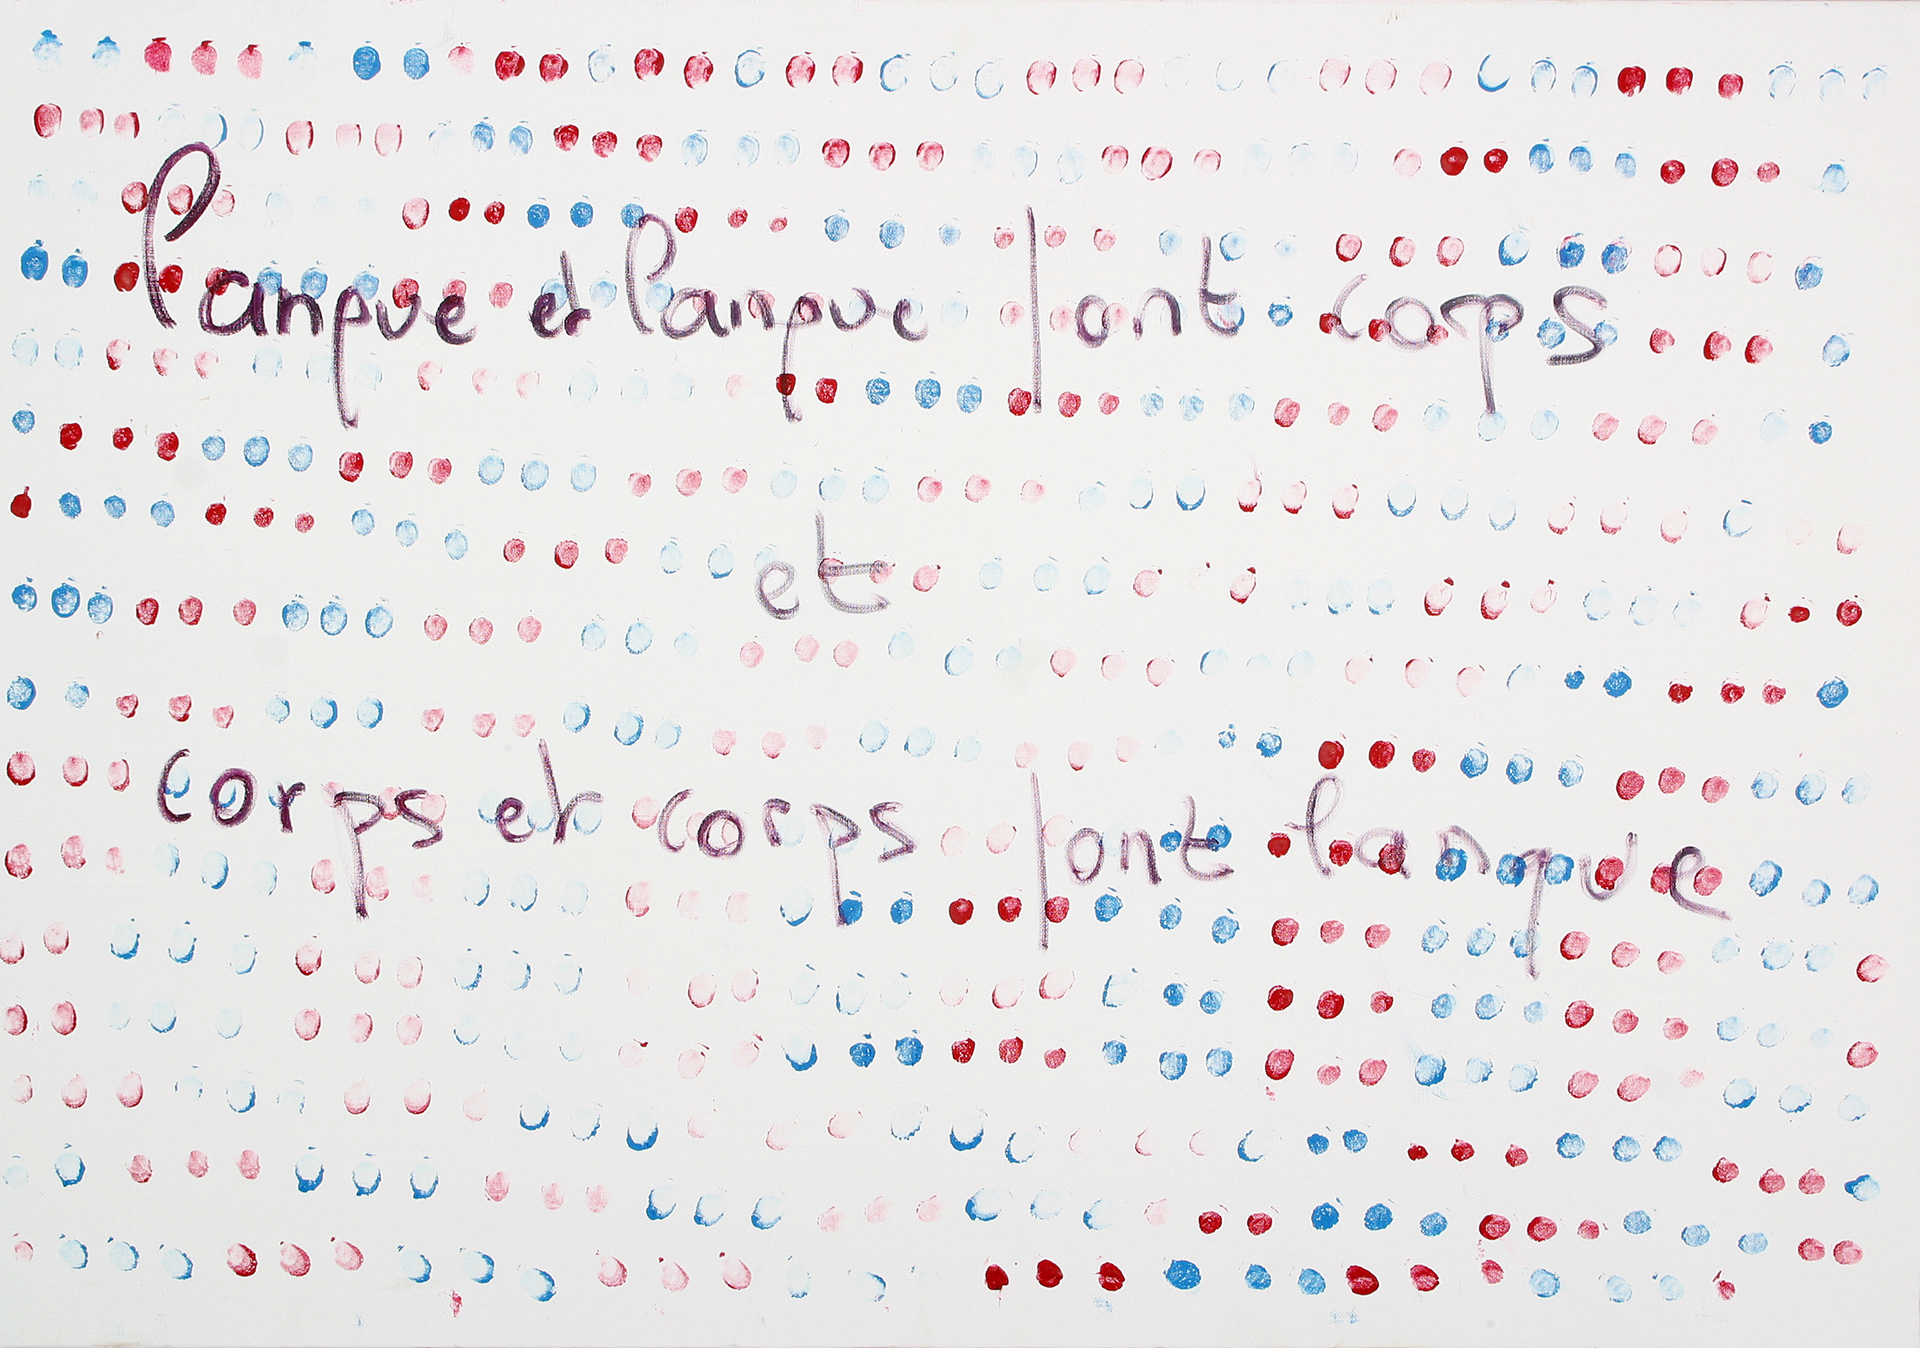 langue et langue font corps
et
corps et corps font langue